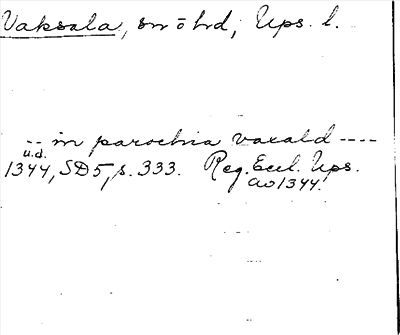 Vaksala, sn o hd, Ups. l.
-- in parochia vaxald ----
u.d.
1344, SD5, s. 333. Reg. Eccl. Ups.
ao 1344.